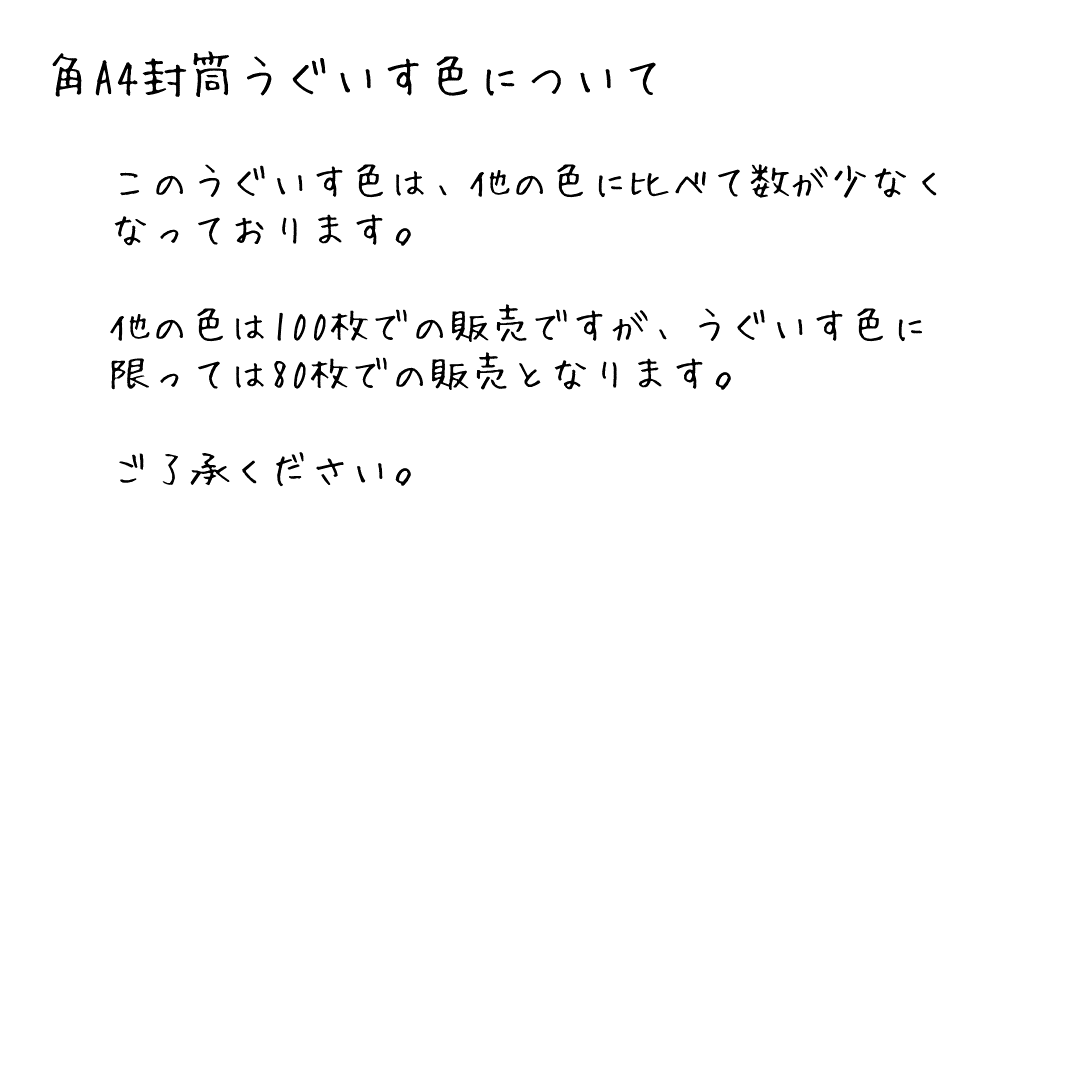 角A4封筒うぐいす色について
このうぐいす色は、他の色に比べて数が少なく
なっております。
他の色は100枚での販売ですが、うぐいす色に
限っては80枚での販売となります。
ご了承ください。